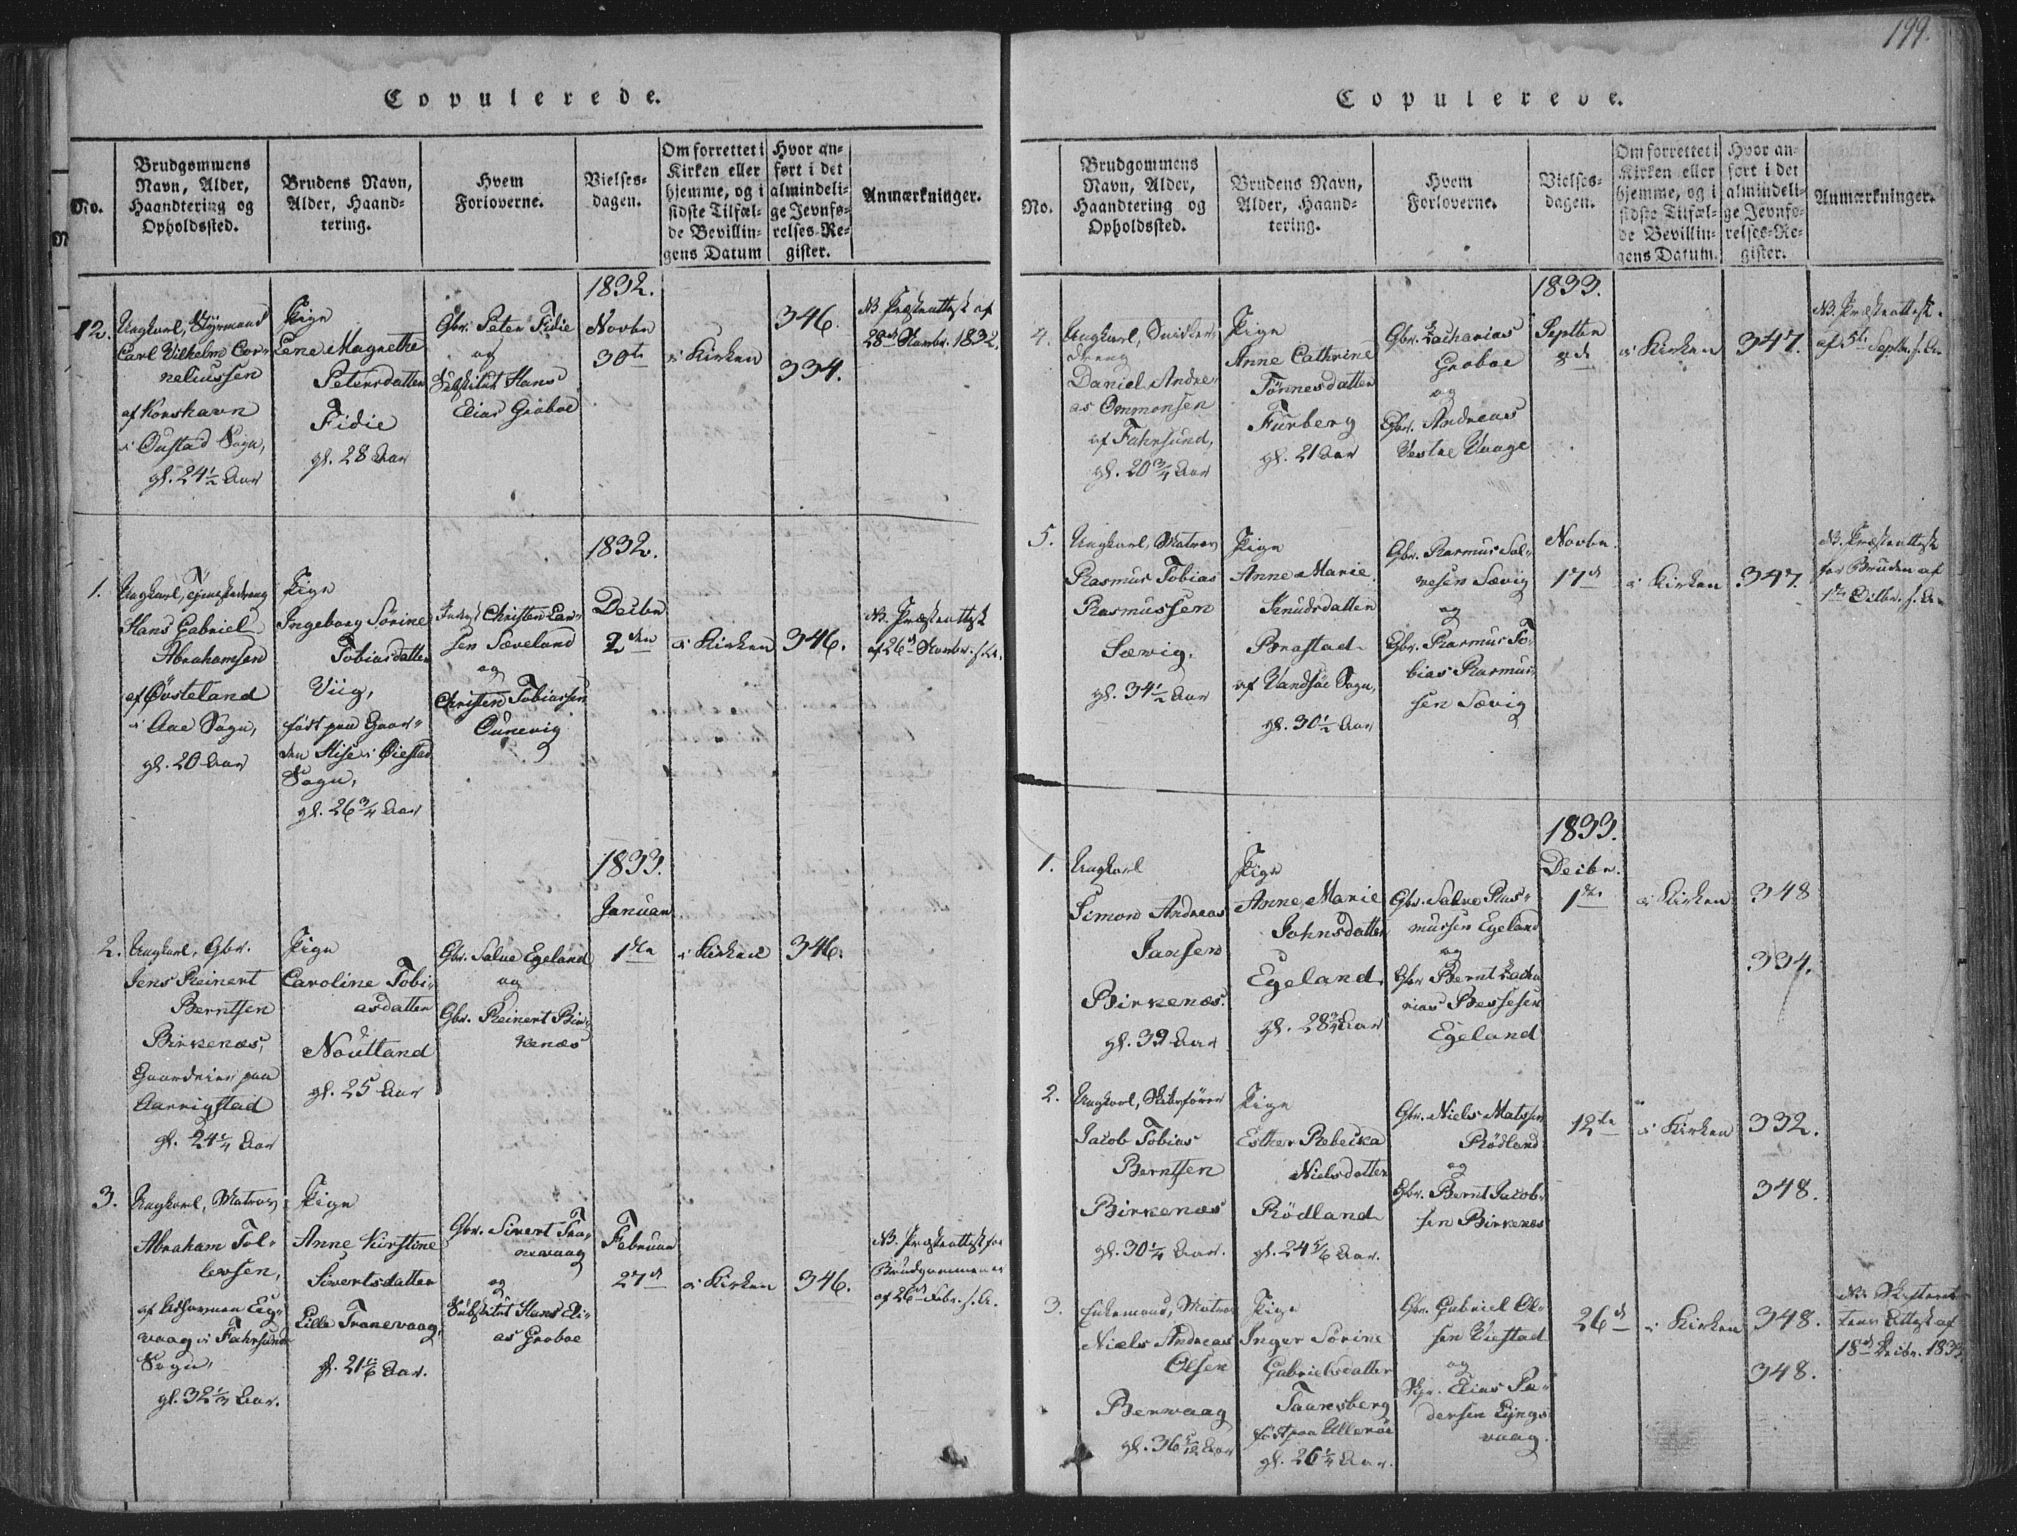 Copulerede.
No.
Brudgommens
Navn, Alder,
Haandtering og
Opholdssted.
Brudens Navn,
Alder, Haand-
tering.
Hvem
Forloverne.
Vielses-
dagen.
Om forrettet i
Kirken eller
hjemme, og i
sidste Tilfæl-
de Bevillin-
gens Datum
Hvor an-
ført i det
almindeli-
ge Jevnfø-
relses-Re-
gister.
Anmærkninger.
12.
Ungkarl, Styrmand
Carl Vilhelm Cor-
neliussen
af Korshavn
i Oustad Sogn,
gl. 24 1/2 Aar
Pige
Lene Magrethe
Petersdatter
Fidie
gl. 28 Aar
Gbr. Peter Fidie
og
Substitut Hans
Elias Groboe
1832.
Novbr
30te
i Kirken
346.
334.
NB. Præsteattest af
28d Novbr. 1832.
1.
Ungkarl,
Hans Gabriel
Abrahamsen
af Øvsteland
i Aae Sogn,
gl. 20 Aar
Pige
Ingeborg Sørine
Tobiasdatter
Viig,
født paa Gaar-
den Hise i Øiestad
Sogn,
gl. 26 3/4 Aar
Christen Lar-
sen Sæveland
og
Christen Tobiassen
Dunevig
1832.
Decbr
2den
i Kirken
346.
NB. Præsteattest
af 26d Novbr. s. A.
2.
Ungkarl, Gbr.
Jens Reinert
Berntsen
Birkenæs,
Gaardeier paa
Aarrigstad
gl. 24 1/4 Aar
Pige
Caroline Tobi-
asdatter
Noutland
gl. 25 Aar
Gbr. Salve Egeland
og
Gbr. Reinert Bir-
kenæs
1833.
Januar
1ste
i Kirken
346.
3.
Ungkarl, Matros
Abraham Tol-
levsen,
af Udhavnen Eig-
vaag i Fahrsund
Sogn,
gl. 32 1/3 Aar.
Pige
Anne Kirstine
Sivertsdatter
Lille Tranevaag,
gl. 21 1/6 Aar.
Gbr. Sivert Tra-
nevaag
og
Substitut Hans Eli-
as Groboe
Februar
27d
i Kirken
346.
NB. Præsteattest for
Brudgommen er
af 26d Febr. s. A.
199.
Copulerede.
No.
Brudgommens
Navn, Alder,
Haandtering og
Opholdssted.
Brudens Navn,
Alder, Haand-
tering.
Hvem
Forloverne.
Vielses-
dagen.
Om forrettet i
Kirken eller
hjemme, og i
sidste Tilfæl-
de Bevillin-
gens Datum.
Hvor an-
ført i det
almindeli-
ge Jevnfø-
relses-Re-
gister.
Anmærkninger.
4.
Ungkarl, Snicker-
svend
Daniel Andre-
as Ommonsen
af Fahrsund,
gl. 20 3/4 Aar
Pige
Anne Cathrine
Tønnesdatter
Furberg
gl. 21 Aar
Gbr. Zacharias
Groboe
og
Gbr. Andreas
Vestre Vaage
1833.
Septbr
8de
i Kirken
347.
NB. Præsteattest
af 5te Septbr. s. A.
5.
Ungkarl, Matros
Rasmus Tobias
Rasmussen
Sævig.
gl. 34 1/2 Aar
Pige
Anne Marie
Knudsdatter
Brastad
af Vandsøe Sogn,
gl. 30 1/2 Aar
Gbr. Rasmus Sal-
vesen Sævig
og
Gbr. Rasmus To-
bias Rasmus-
sen Sævig
Novbr.
17d
i Kirken
347.
NB. Præsteattest
for Bruden af
1ste Octbr. s. A.
1.
Ungkarl
Simon Andreas
Jansen
Birkenæs.
gl. 39 Aar
Pige
Anne Marie
Johnsdatter
Egeland
gl. 28 3/4 Aar
Gbr. Salve Ras-
mussen Egeland
og
Gbr Bernt Zacha
rias Bessesen
Egeland
1833.
Decbr.
1ste
i Kirken
348
334.
2.
Ungkarl, Skibsfører
Jacob Tobias
Berntsen
Birkenæs
gl. 30 1/4 Aar.
Pige
Esther Rebecka
Nielsdatter
Rødland
gl. 24 5/6 Aar.
Gbr. Niels Matssen
Rødland
og
Gbr. Bernt Jacob-
sen Birkenæs
12te
i Kirken
332.
348.
3.
Enkemand, Matros
Niels Andreas
Olsen
Berwaag
gl. 36 5/12 Aar
Pige
Inger Sørine
Gabrielsdatter
Taaresberg
født paa Ullerøe
gl. 26 1/4 Aar.
Gbr. Gabriel Ol-
sen Viestad
og
Elias Pe-
dersen Eyngs
vaag.
26d
i Kirken
348.
348.
NB. Skifteret-
tens Attest af
18d Decbr. 1833.